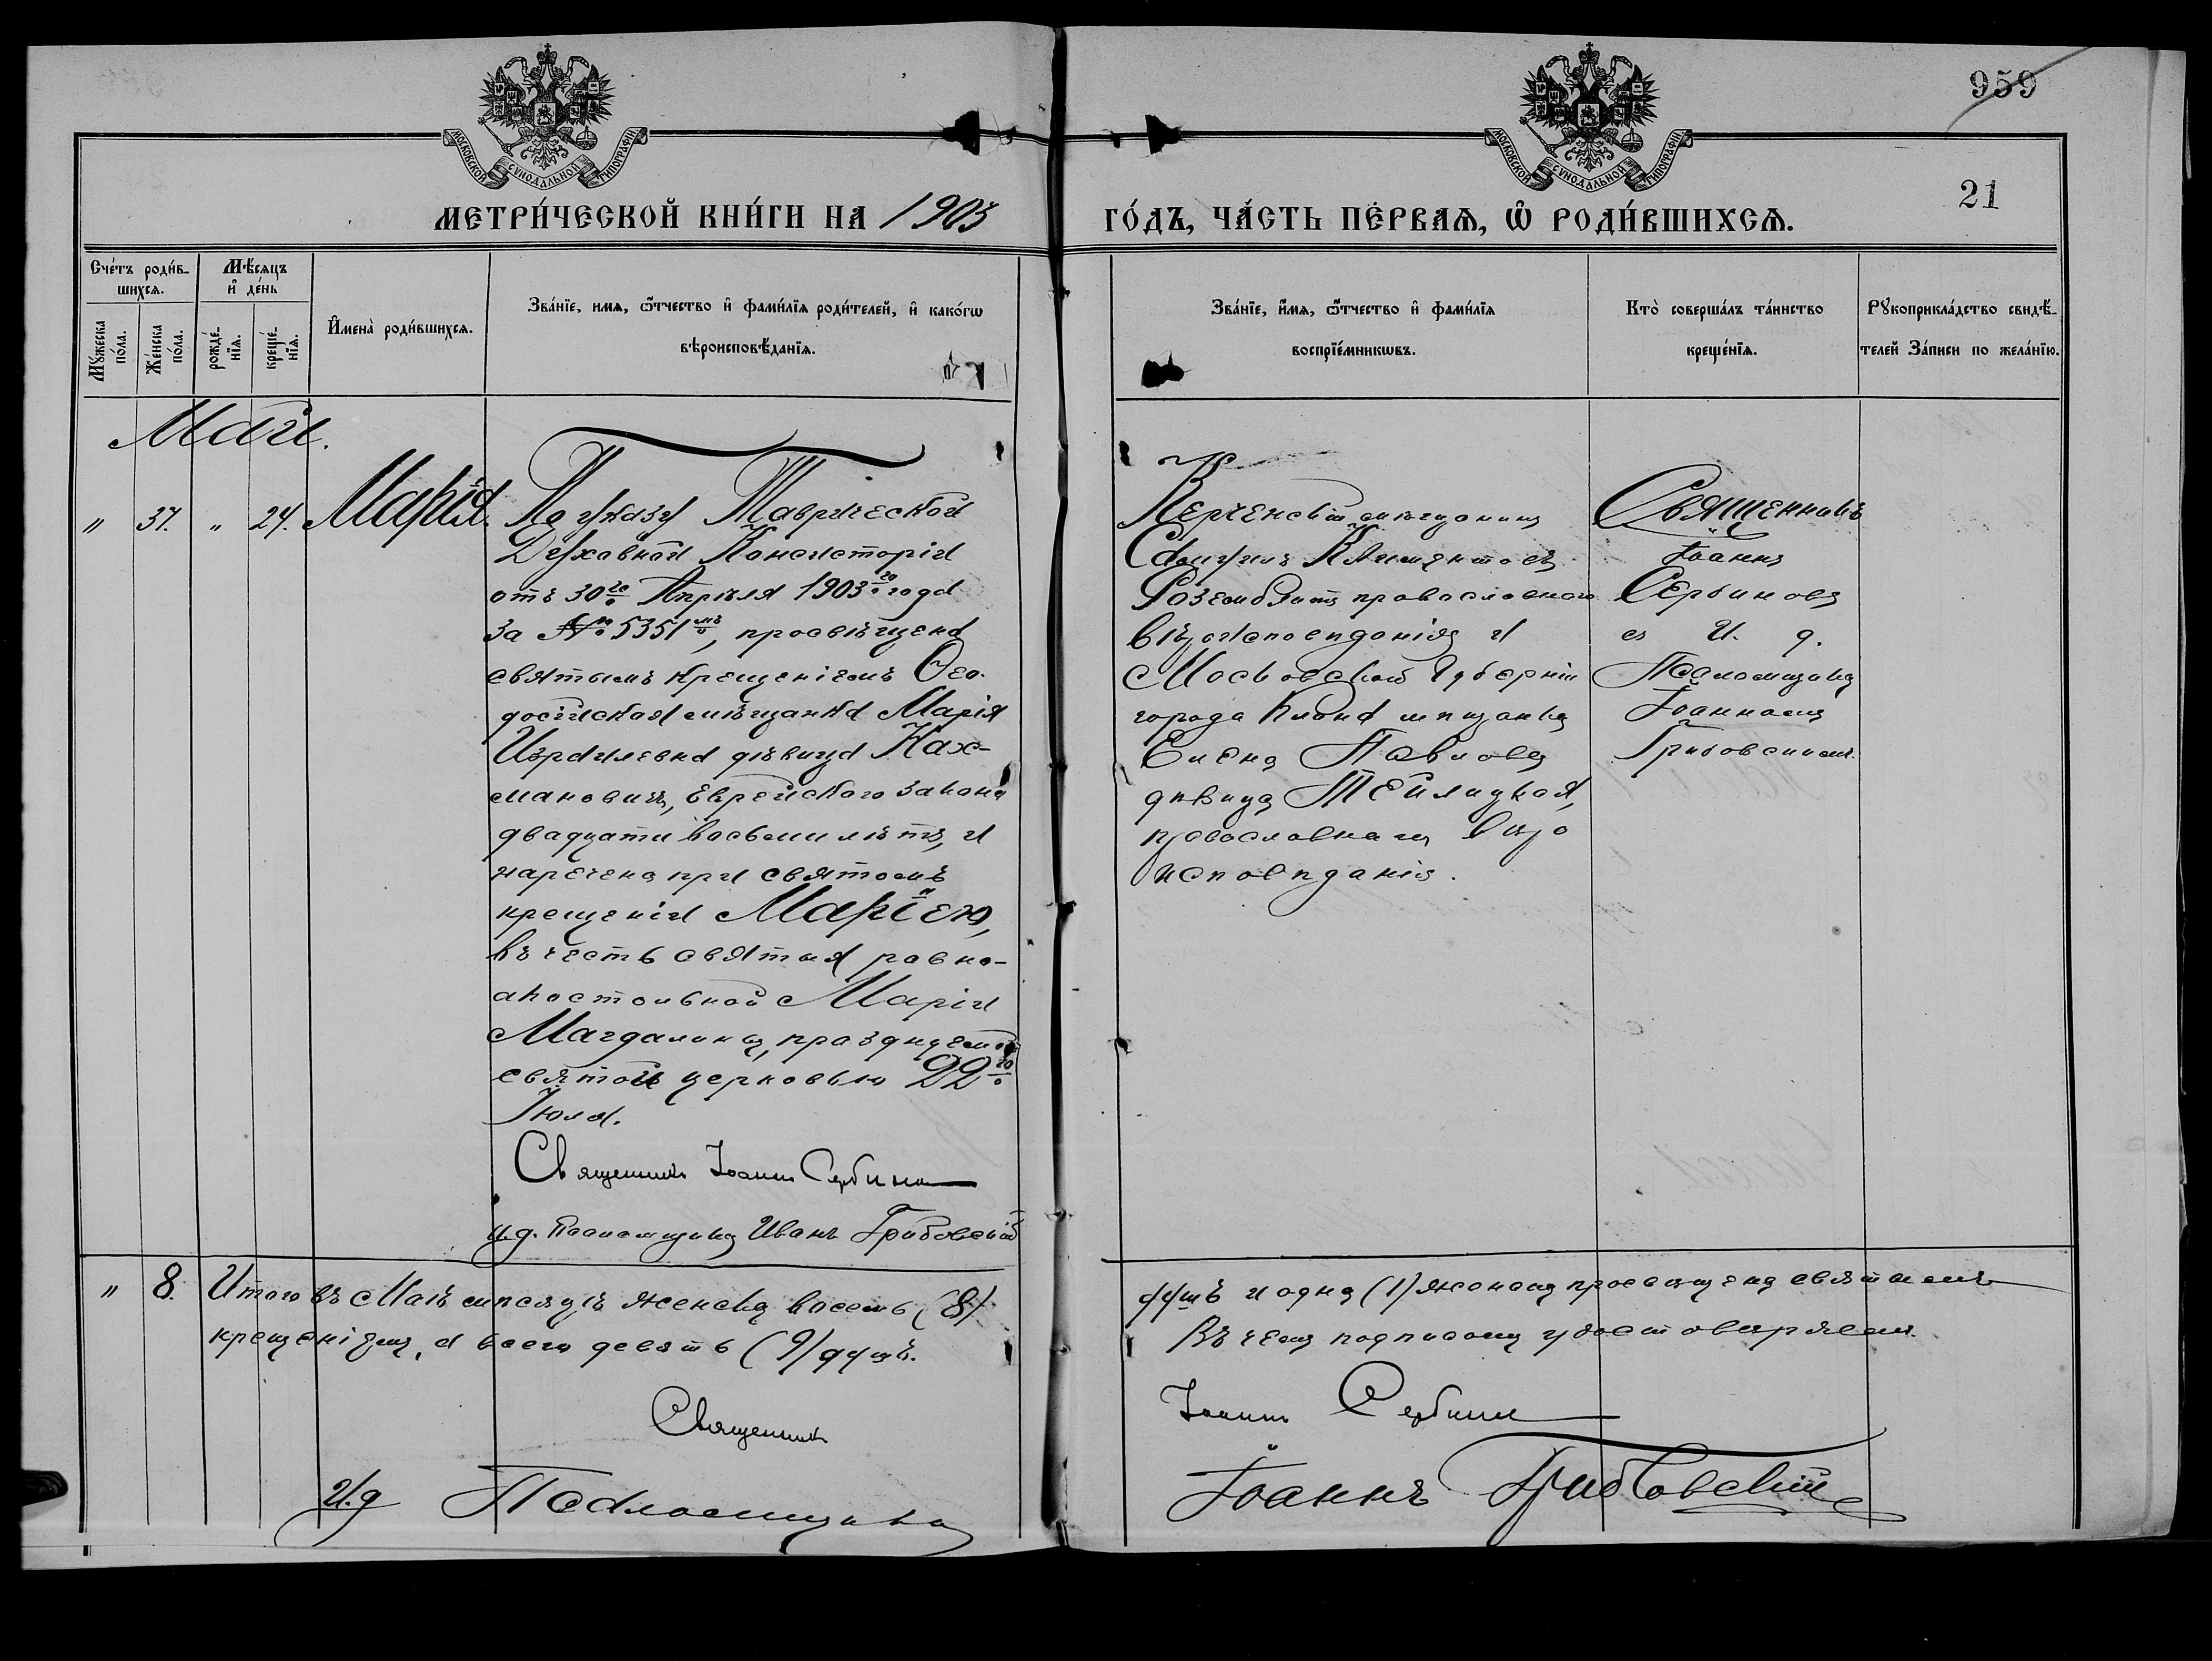 959
21
МОСКОВСКОЙ СѴНОДАЛЬНОЙ ТИПОГРАФІИ
МОСКОВСКОЙ СѴНОДАЛЬНОЙ ТИПОГРАФІИ
МЕТРИ́ЧЕСКОЙ КНИ́ГИ НА 1903 ГО́ДЪ, ЧА́СТЬ ПЕ́РВАѦ, Ѽ РОДИ́ВШИХСѦ.
Сче́тъ роди́в-
шихсѧ.
Мꙋ́жеска
по́ла.
Же́нска
по́ла.
Мѣ́сѧцъ
и҆ де́нь
рожде́-
нїѧ.
креще́-
нїѧ.
И҆мена̀ роди́вшихсѧ.
Зва́нїе, имѧ, ѻ҆́тчество и҆ фами́лїѧ роди́телей, и҆ како́гѡ
вѣроисповѣ́данїѧ.
Зва́нїе, и҆́мѧ, ѻ҆́тчество и҆ фами́лїѧ
воспрїе́мникѡвъ.
Кто̀ соверша́лъ та́инство
креще́нїѧ.
Рꙋкоприкла́дство свидѣ́-
телей За́писи по жела́нїю.
Май.
" 37. " 24. Марія.
По указу Таврической
Духовной Консисторіи
отъ 30го Апрѣля 1903го года
за № 5351мъ, просвѣщена
святымъ крещеніемъ Ѳео-
досійская мѣщанка Марія
Израилевна дѣвица Нах-
мановичъ, Еврейского закона
двадцати восьми лѣтъ, и
наречена при святомъ
крещеніи Маріею,
въ честь святыя равно-
апостольной Маріи
Магдалины, празднуемой
святою церковью 22го
Іюля.
Священникъ Іоаннъ Сербиновъ
и.д. Псаломщика Иванъ Грибовскій
Керченскій мѣщанинъ
Климентовъ
православнаго
вѣроисповѣданія и
Московской Губерніи
города Клина мѣщанка
Елена Павлова
дѣвица Тейлицкая,
православнаго вѣро
исповѣданія.
Священникъ
Іоаннъ
Сербиновъ
съ И. д.
Псаломщика
Іоанномъ
Грибовскимъ.
" 8. Итого въ Маѣ мѣсяцѣ женска восемь (8) душъ и одна (1) женска просвящена святымъ
крещеніемъ, а всего девять (9) душъ. Въ чемъ подписомъ удостовѣряемъ.
Священникъ Іоаннъ Сербиновъ
И.д Псаломщика Іоаннъ Грибовскій